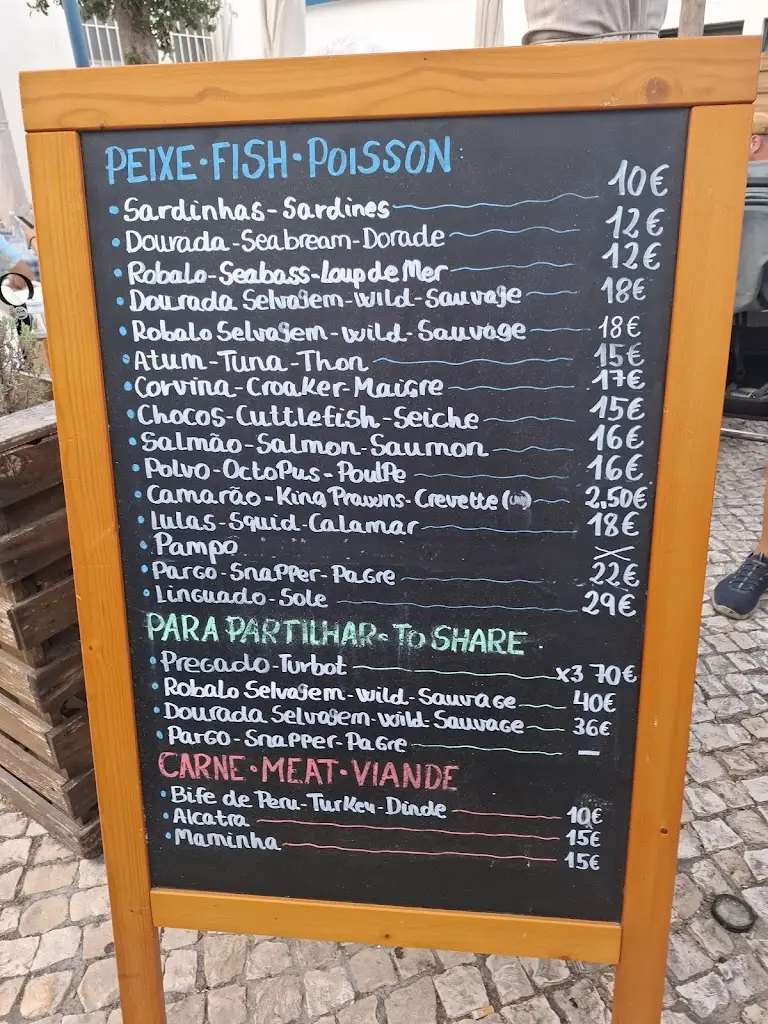 PEIXE·FISH·POISSON
•Sardinhas-Sardines 10€
•Dourada-Seabream-Dorade 12€
•Robalo-Seabass-Loup de Mer 12€
•Dourada Selvagem-Wild-Sauvage 18€
•Robalo Selvagem-Wild-Sauvage 18€
•Atum-Tuna-Thon 15€
•Corvina-Croaker-Maigre 17€
•Chocos-Cuttlefish-Seiche 15€
•Salmão-Salmon-Saumon 16€
•Polvo-Octopus-Poulpe 16€
•Camarão-King Prawns-Crevette 2,50€
•Lulas-Squid-Calamar 18€
•Pampo
•Pargo-Snapper-Pagre 22€
•Linguado-Sole 29€
PARA PARTILHAR·TO SHARE
•Pregado-Turbot x3 70€
•Robalo Selvagem-Wild-Sauvage 40€
•Dourada Selvagem-Wild-Sauvage 36€
•Pargo-Snapper-Pagre —
CARNE·MEAT·VIANDE
•Bife de Peru-Turkey-Dinde 10€
•Alcatra 15€
•Maminha 15€